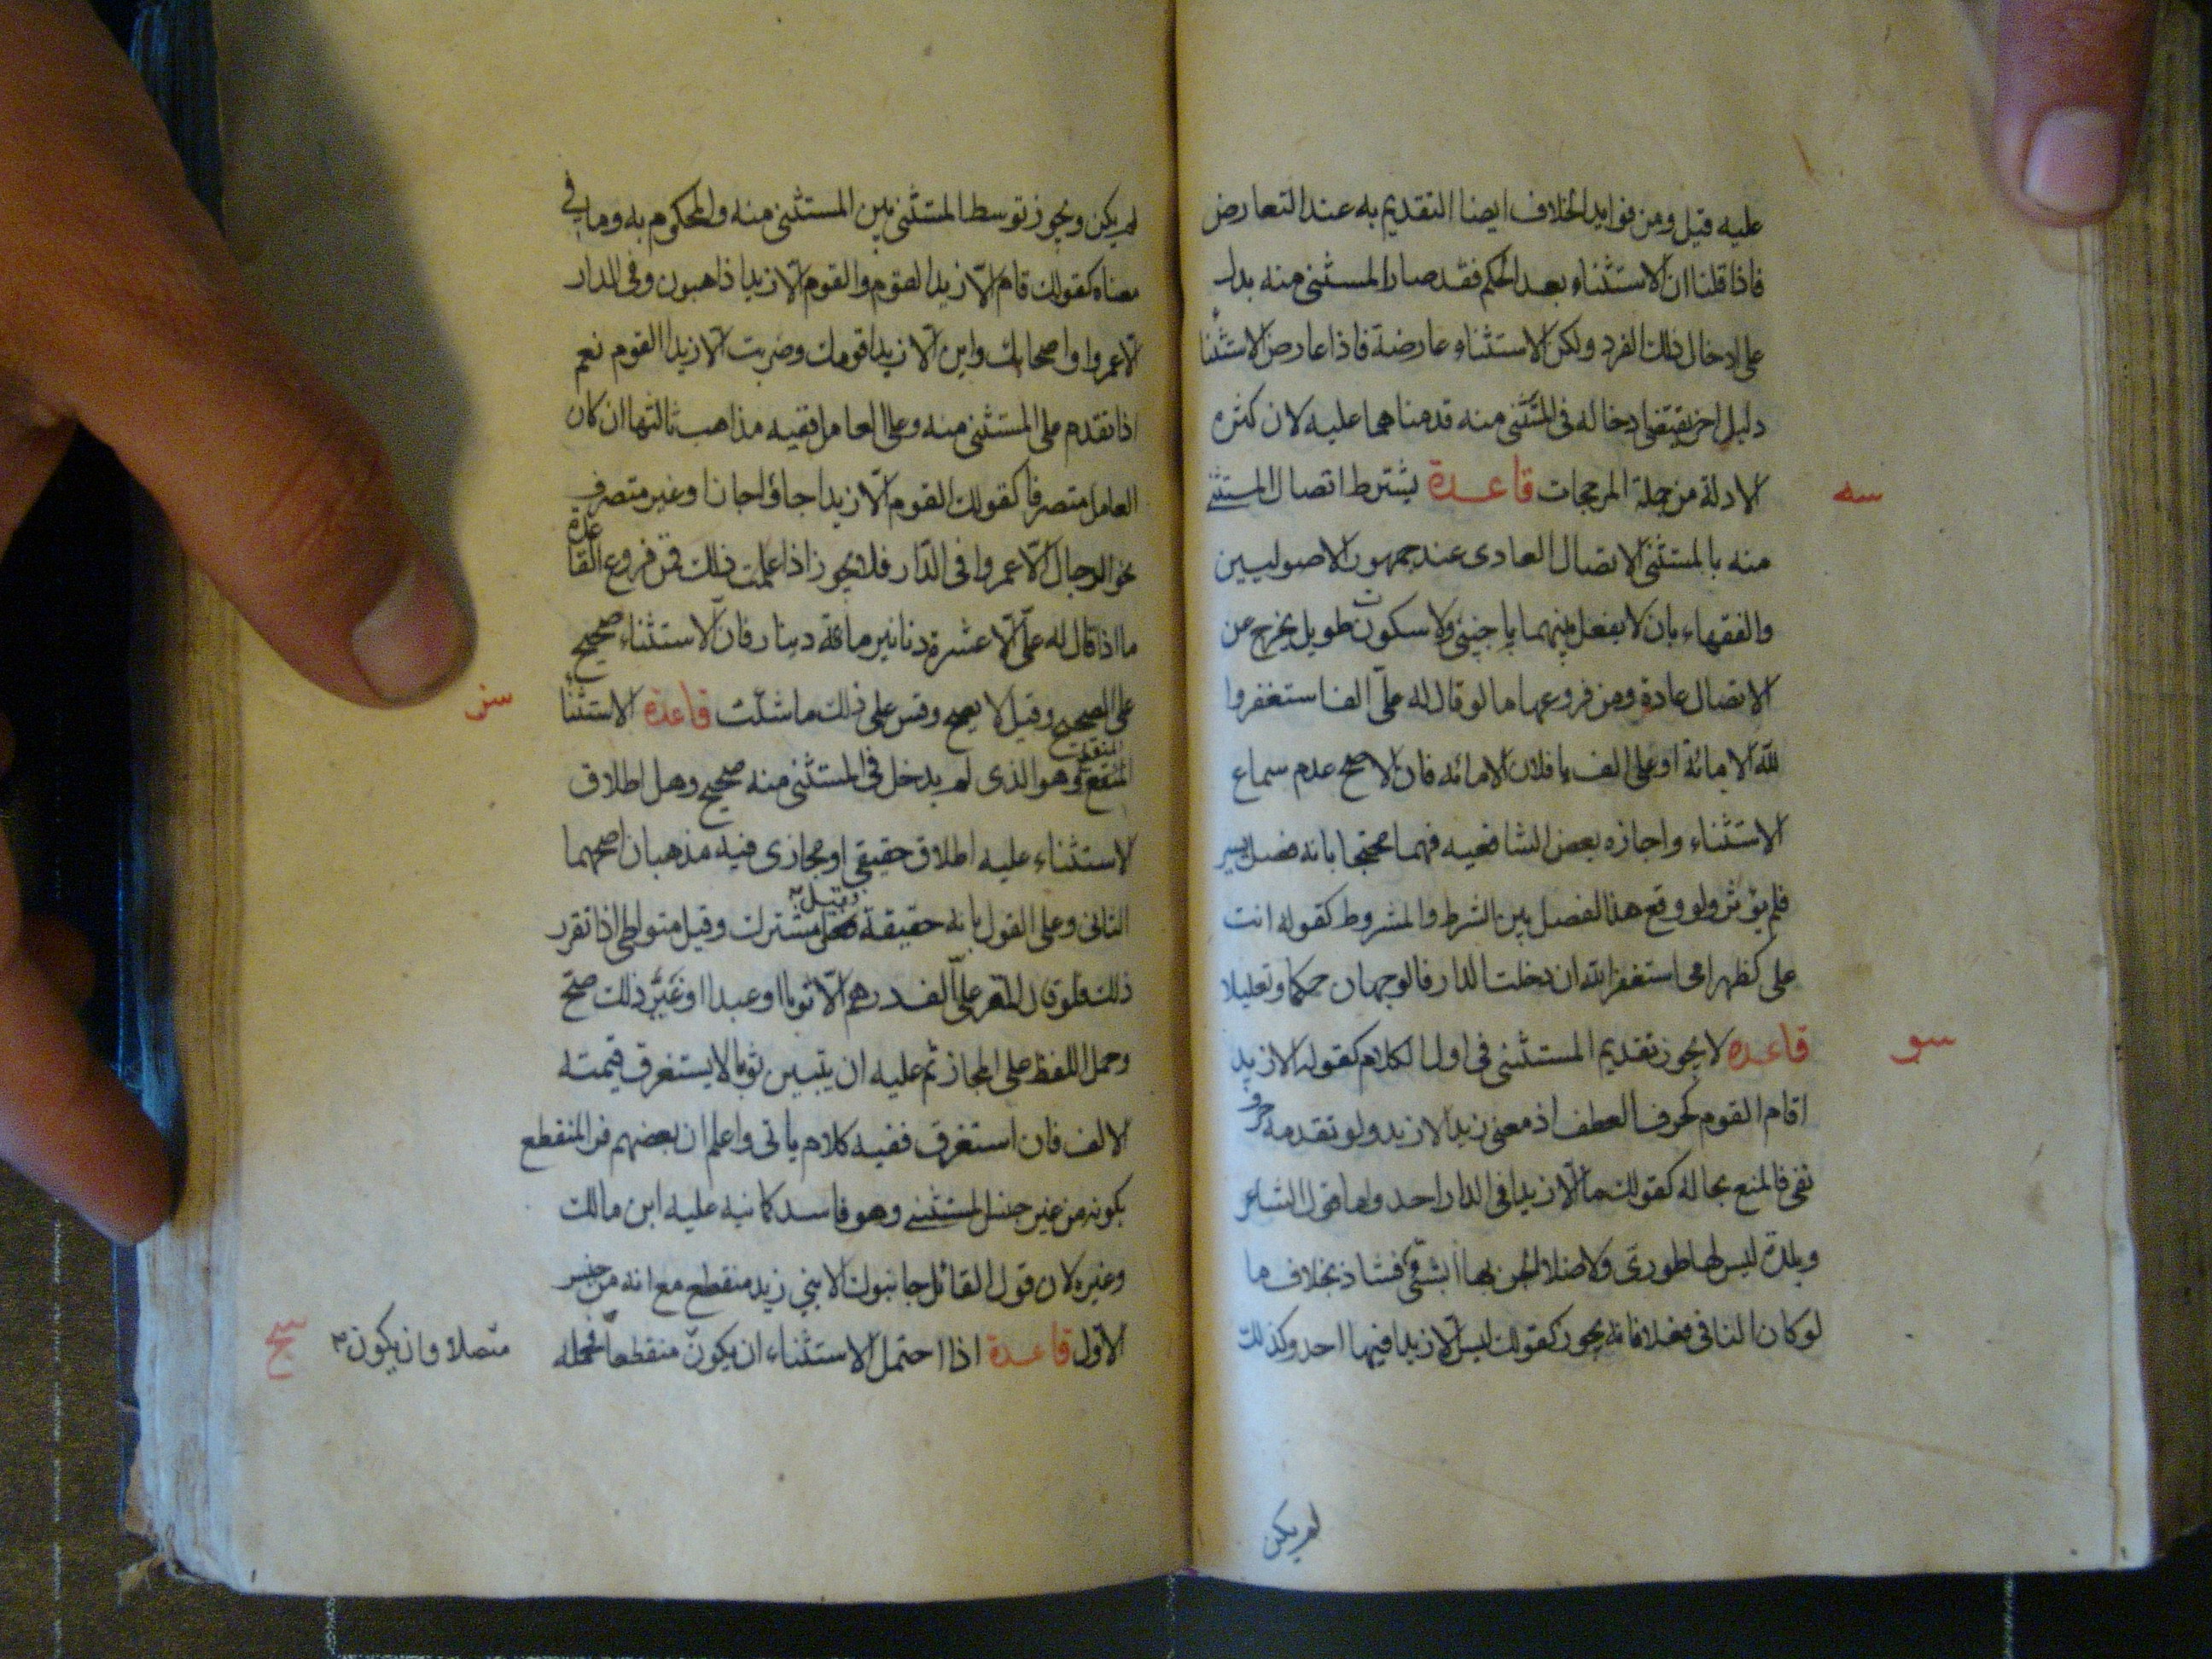 عليه قيل ومن فوايد الخلاف ايضا التقديم به عند التعارض
فاذا قلنا ان الاستثناء بعد الحكم فقد صار المستثنى منه بدل
على ادخال ذلك الفرد ولكن الاستثناء عارضة فاذا عارض الاستثناء
دليل اخر يقتضى ادخاله فى المستثنى منه قدمناهما عليه لان كثرة
الادلة من جملة المرجحات قاعدة يشترط اتصال المستثنى
سه
منه بالمستثنى الاتصال العادى عند جمهور الاصوليين
والفقهاء بان لا يفصل بينهما باجنبى ولا سكوت طويل يخرج عن
الاتصال عادة ومن فروعها ما لو قال له علىّ الف استغفروا
لله الا مائة او على الف يا فلان الا مائه فان الاصح عدم سماع
الاستثناء واجازه بعض الشافعيه فيهما محتجا بانه فصل يسير
فلم يؤثر ولو وقع هذا الفصل بين الشرط والمشروط كقوله انت
على كظهر امى استغفر الله ان دخلت الدار فالوجهان حكما وتعليلا
قاعده لا يجوز تقديم المستثنى فى اول الكلام كقولك الا زيد
سو
اقام القوم كحرف العطف اذ معنى زيد لا زيد ولو تقدمه حرف
نفى فالمنع بحاله كقولك ما الّا زيدا فى الدار احد واما قول الشاعر
وبلدة ليس بها طورى ولا خلا الجن بها انسى فشاذ بخلاف ما
لو كان النافى فعلا فانه يجوز كقولك ليس الا زيدا فيها احد وكذلك
لم يكن
لم يكن ويجوز توسط المستثنى بين المستثنى منه والمحكوم به وما فى
معناه كقولك قام الّا زيدا القوم والقوم الّا زيدا ذاهبون وفى الدار
الّا عمروا واصحابك واين الّا زيدا قومك وضربت الا زيدا القوم نعم
اذا تقدم على المستثنى منه وعلى العامل ففيه مذاهب ثالثها ان كان
العامل متصرفا كقولك القوم الّا زيدا جاؤا جاز او غير متصرف
نحو الرجال الّا عمروا فى الدّار فلا يجوز اذا علمت ذلك فمن فروع القاعدة
ما اذا قال له علىّ الّا عشرة دنانير مائة دينار فان الاستثناء صحيح
على الصحيح وقيل لا يصح وقس على ذلك ما شئت قاعدة الاستثناء
سز
المنقطع وهو الذى لم يدخل فى المستثنى منه صحيح وهل اطلاق
الاستثناء عليه اطلاق حقيقى او مجازى فيه مذهبان اصحهما
الثانى وعلى القول بانه حقيقة فقيل مشترك وقيل متواطى اذا تقرر
ذلك فلو قال المقر علىّ الف درهم الّا ثوبا او عبدا او غير ذلك صحّ
وحمل اللفظ على المجاز ثم عليه ان يتبين ثوبا لا يستغرق قيمته
الالف فان استغرق ففيه كلام ياتى واعلم ان بعضهم فسر المنقطع
بكونه من غير جنس المستثنى وهو فاسد كما نبه عليه ابن مالك
وغيره لان قول القائل جا بنوك الا بنى زيد منقطع مع انه من جنس
الاول قاعدة اذا احتمل الاستثناء ان يكون منقطعا فحمله
متصلا وان يكون
سح